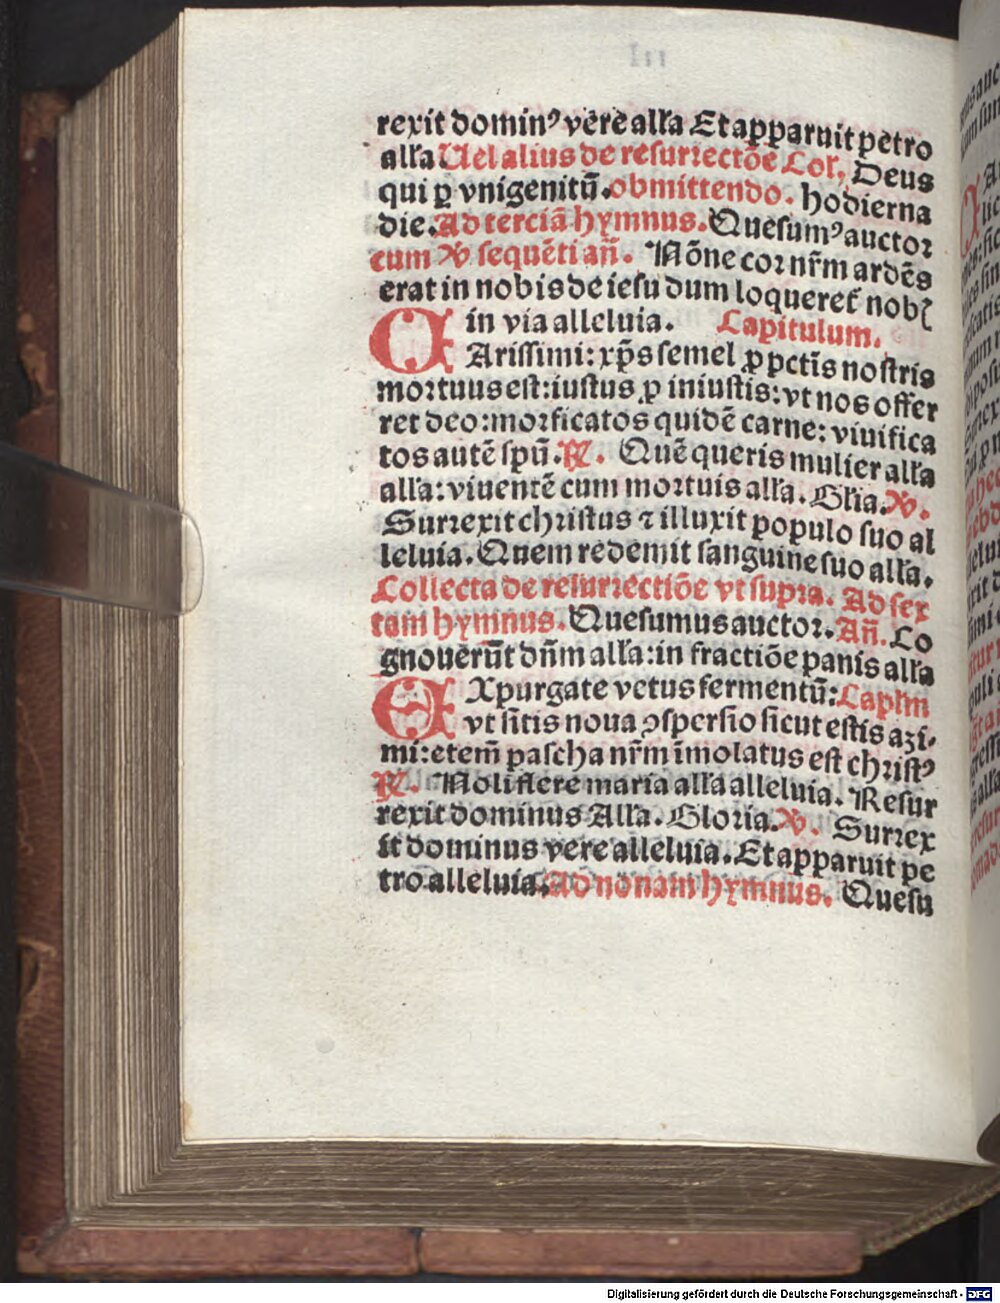 rexit dominꝰ vere alła Et apparuit petro
alła Uel alius de resurrectõe Col, Deus
qui ꝑ vnigenitũ. obmittendo. hodierna
die. Ad terciã hymnus. Quesumꝰ auctor
cum ℣ sequẽti añ. Nõne cor nr̃m ardẽs
erat in nobis de iesu dum loqueret᷑ nobꝭ
in via alleluia. Capitulum.
CArissimi: xp̃s semel ꝓ pctĩs nostris
mortuus est: iustus ꝓ iniustis: vt nos offer
ret deo: morficatos quidẽ carne: viuifica
tos autẽ spũ. ℟. Quẽ queris mulier alła
alła: viuentẽ cum mortuis alła. Glia. ℣.
Surrexit christus ⁊ illuxit populo suo al
leluia. Quem redemit sanguine suo alła.
Collecta de resurrectiõe vt supra. Ad sex
tam hymnus. Quesumus auctor. Añ. Co
gnouerũt dñm alła: in fractiõe panis alła
EXpurgate vetus fermentũ: Caplm
vt sitis noua ꝯspersio sicut estis azi-
mi: etem̃ pascha nr̃m imolatus est christꝰ
℟. Noli flere maria alła alleluia. Resur
rexit dominus Alła. Gloria. ℣. Surrex
it dominus vere alleluia. Et apparuit pe
tro alleluia. Ad nonam hymnus. Quesu
Digitalisierung gefördert durch die Deutsche Forschungsgemeinschaft - DFG